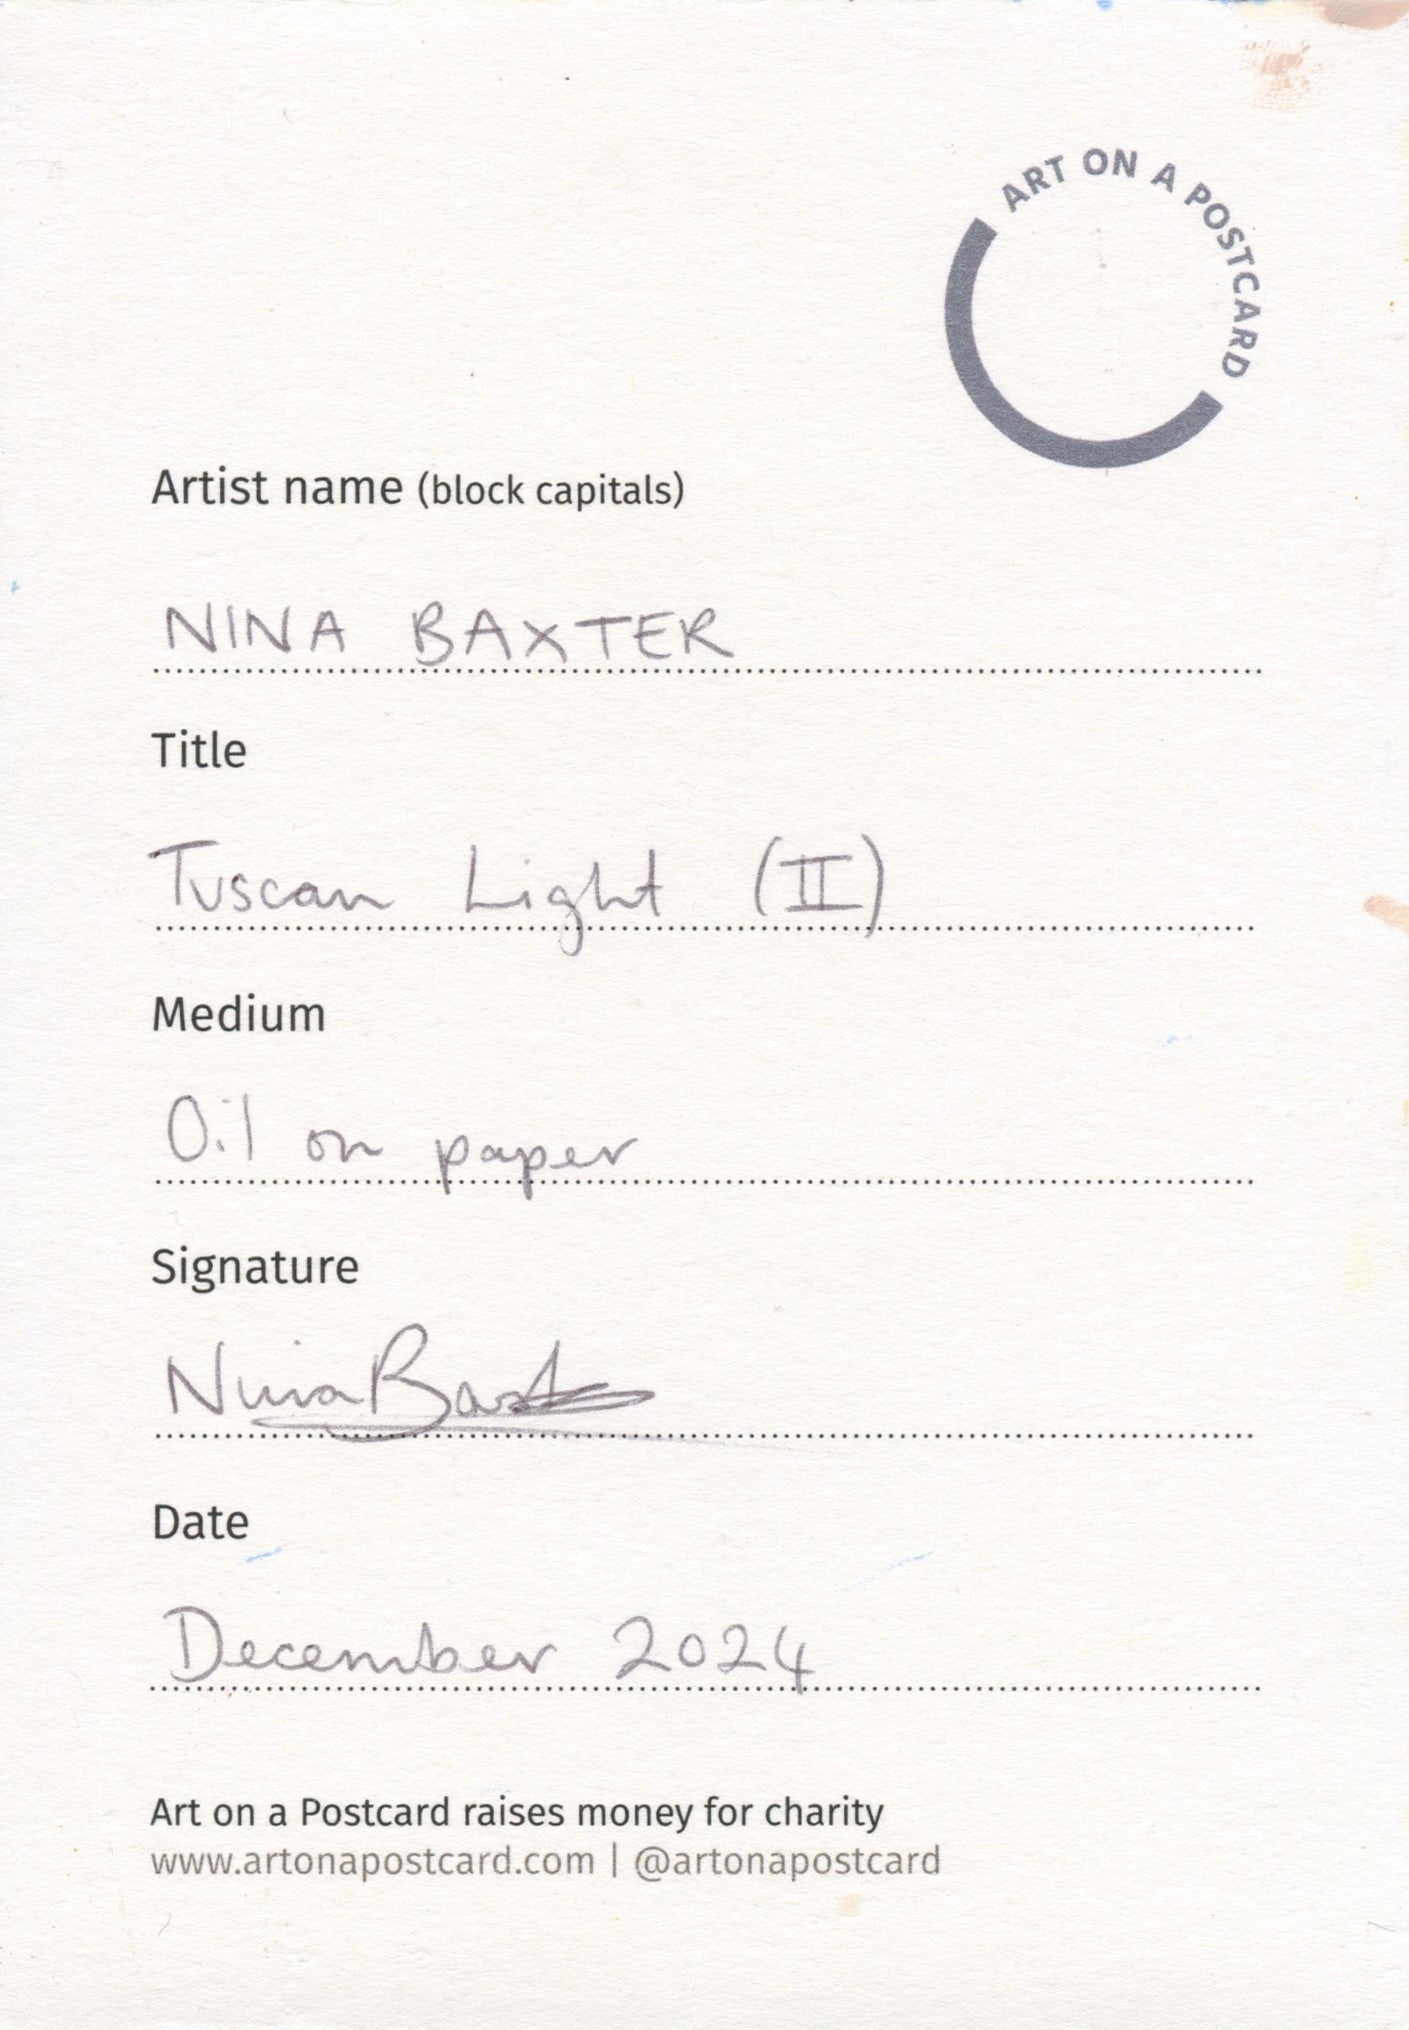 ART ON A POSTCARD
Artist name (block capitals)
NINA BAXTER
Title
Tuscan Light (II)
Medium
Oil on paper
Signature
Nina Baxter
Date
December 2024
Art on a Postcard raises money for charity
www.artonapostcard.com | @artonapostcard